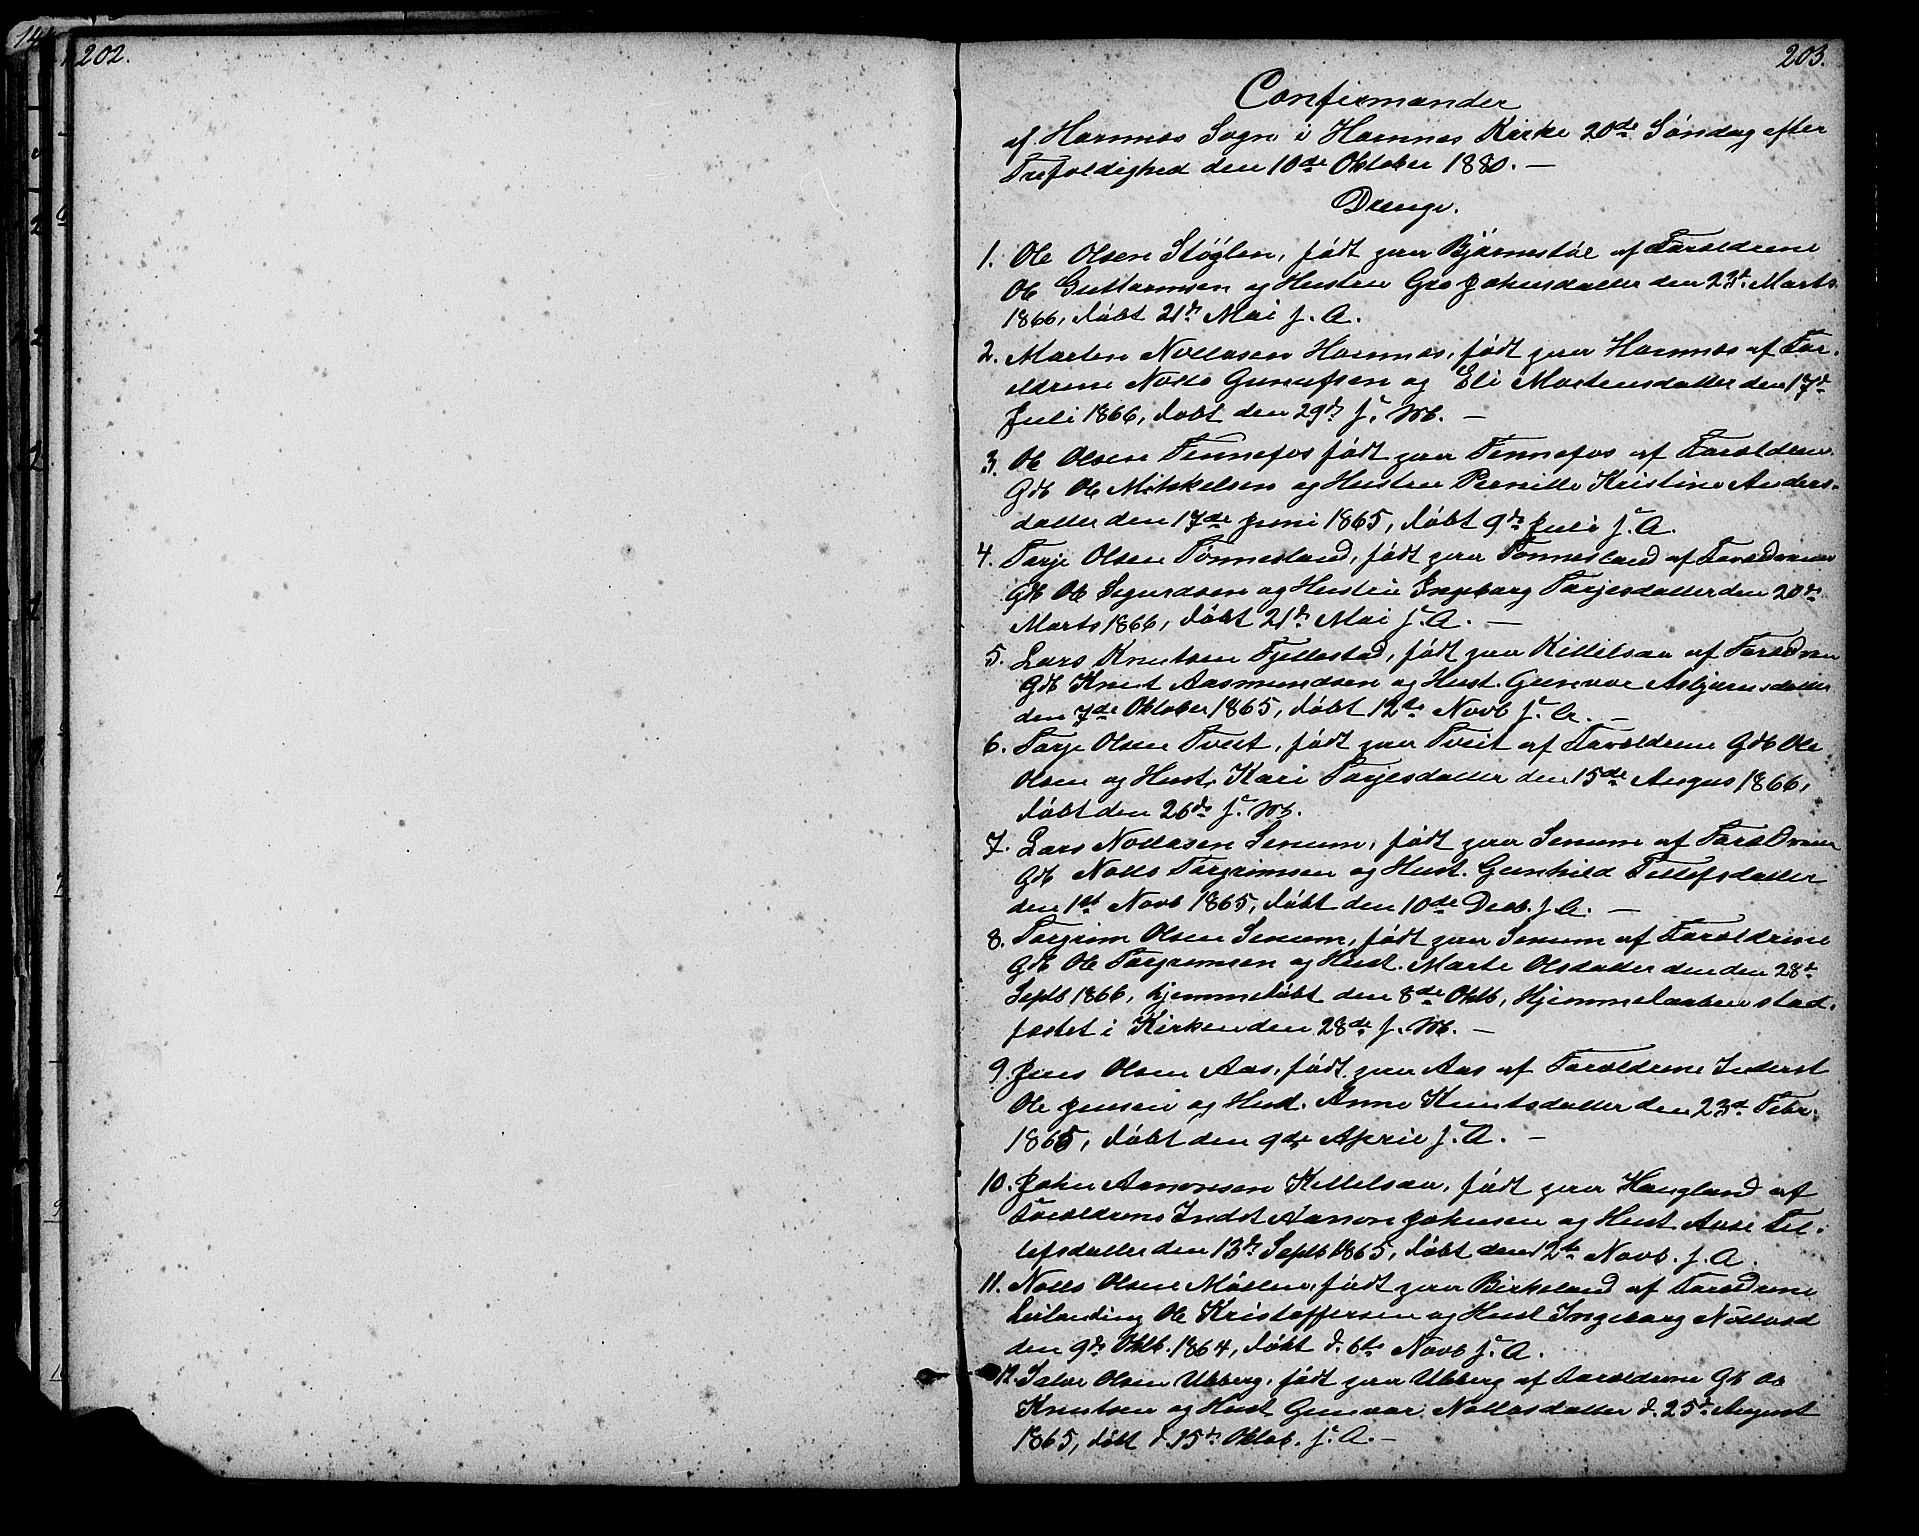 202.
203.
Confirmander
af Hornnes Sogn i Hornnes Kirke 20de Søndag efter
Trefoldighed den 10de Oktober 1880. —
Drenge.
1. Ole Olsen Støglen, født paa Bjørnestøl af Forældrene
Ole Guttormsen og Hustru Gro Johnsdatter den 23de Marts
1866, døbt 21de Mai s. A.
2. Morten Nottosen Hornnes, født paa Hornnes af For-
ældrene Notto Gunufsen og Eli Mortensdatter den 17de
Juli 1866, døbt den 29de s. M. —
3. Ole Olsen Fennefos født paa Fennefos af Forældrene
Gdb Ole Mikkelsen og Hustru Pernille Kristine Anders-
datter den 17de Juni 1865, døbt 9de Juli s. A.
4. Torje Olsen Tønnesland, født paa Tønnesland af Forældrene
Gdb Ole Sigurdsen og Hustru Ingeborg Torjesdatter den 20de
Marts 1866, døbt 21de Mai s. A. —
5. Lars Knutsen Fjellestad, født paa Kittelsaa af Forældrene
Gdb Knut Aasmundsen og Hust. Gunvor Asbjørnsdatter
den 7de Oktober 1865, døbt 12te Novb s. A. —
6. Torje Olsen Tveit, født paa Tveit af Forældrene Gdb Ole
Olsen og Hust. Kari Torjesdatter den 15de Augus 1866,
døbt den 26de s. M.
7. Lars Nottosen Senum, født paa Senum af Forældrene
Gdb Notto Torgrimsen og Hust. Gunhild Tellefsdatter
den 1st Novb 1865, døbt den 10de Decb. s. A. —
8. Torgrim Olsen Senum, født paa Senum af Forældrene
Gdb Ole Torgrimsen og Hust. Marte Olsdatter den den 28de
Septb 1866, hjemmedøbt den 8de Oktb, Hjemmedaaben stad-
fæstet i Kirken den 28de s. M. —
9. Jens Olsen Aas, født paa Aas af Forældrene Inderst
Ole Jensen og Hust. Anne Knutsdatter den 23d Febr.
1865, døbt den 9de April s. A. —
10. John Aanonsen Kittelsaa, født paa Haugland af
Forældrene Indst Aanon Johnsen og Hust Aase Tel-
lefsdatter den 13de Septb 1865, døbt den 12te Novb. s. A.
11. Notto Olsen Møllen, født paa Birkeland af Forældrene
Leilending Ole Kristoffersen og Hust Ingeborg Nottosd
den 9de Oktb. 1864, døbt d. 6te Novb s. A.
12. Salve Olsen Ubberg, født paa Ubberg af Forældrene Gb Ole
Knutsen og Hust Gunvor Nottosdatter d. 25de August
1865, døbt d. 15de Oktob. s. A. —